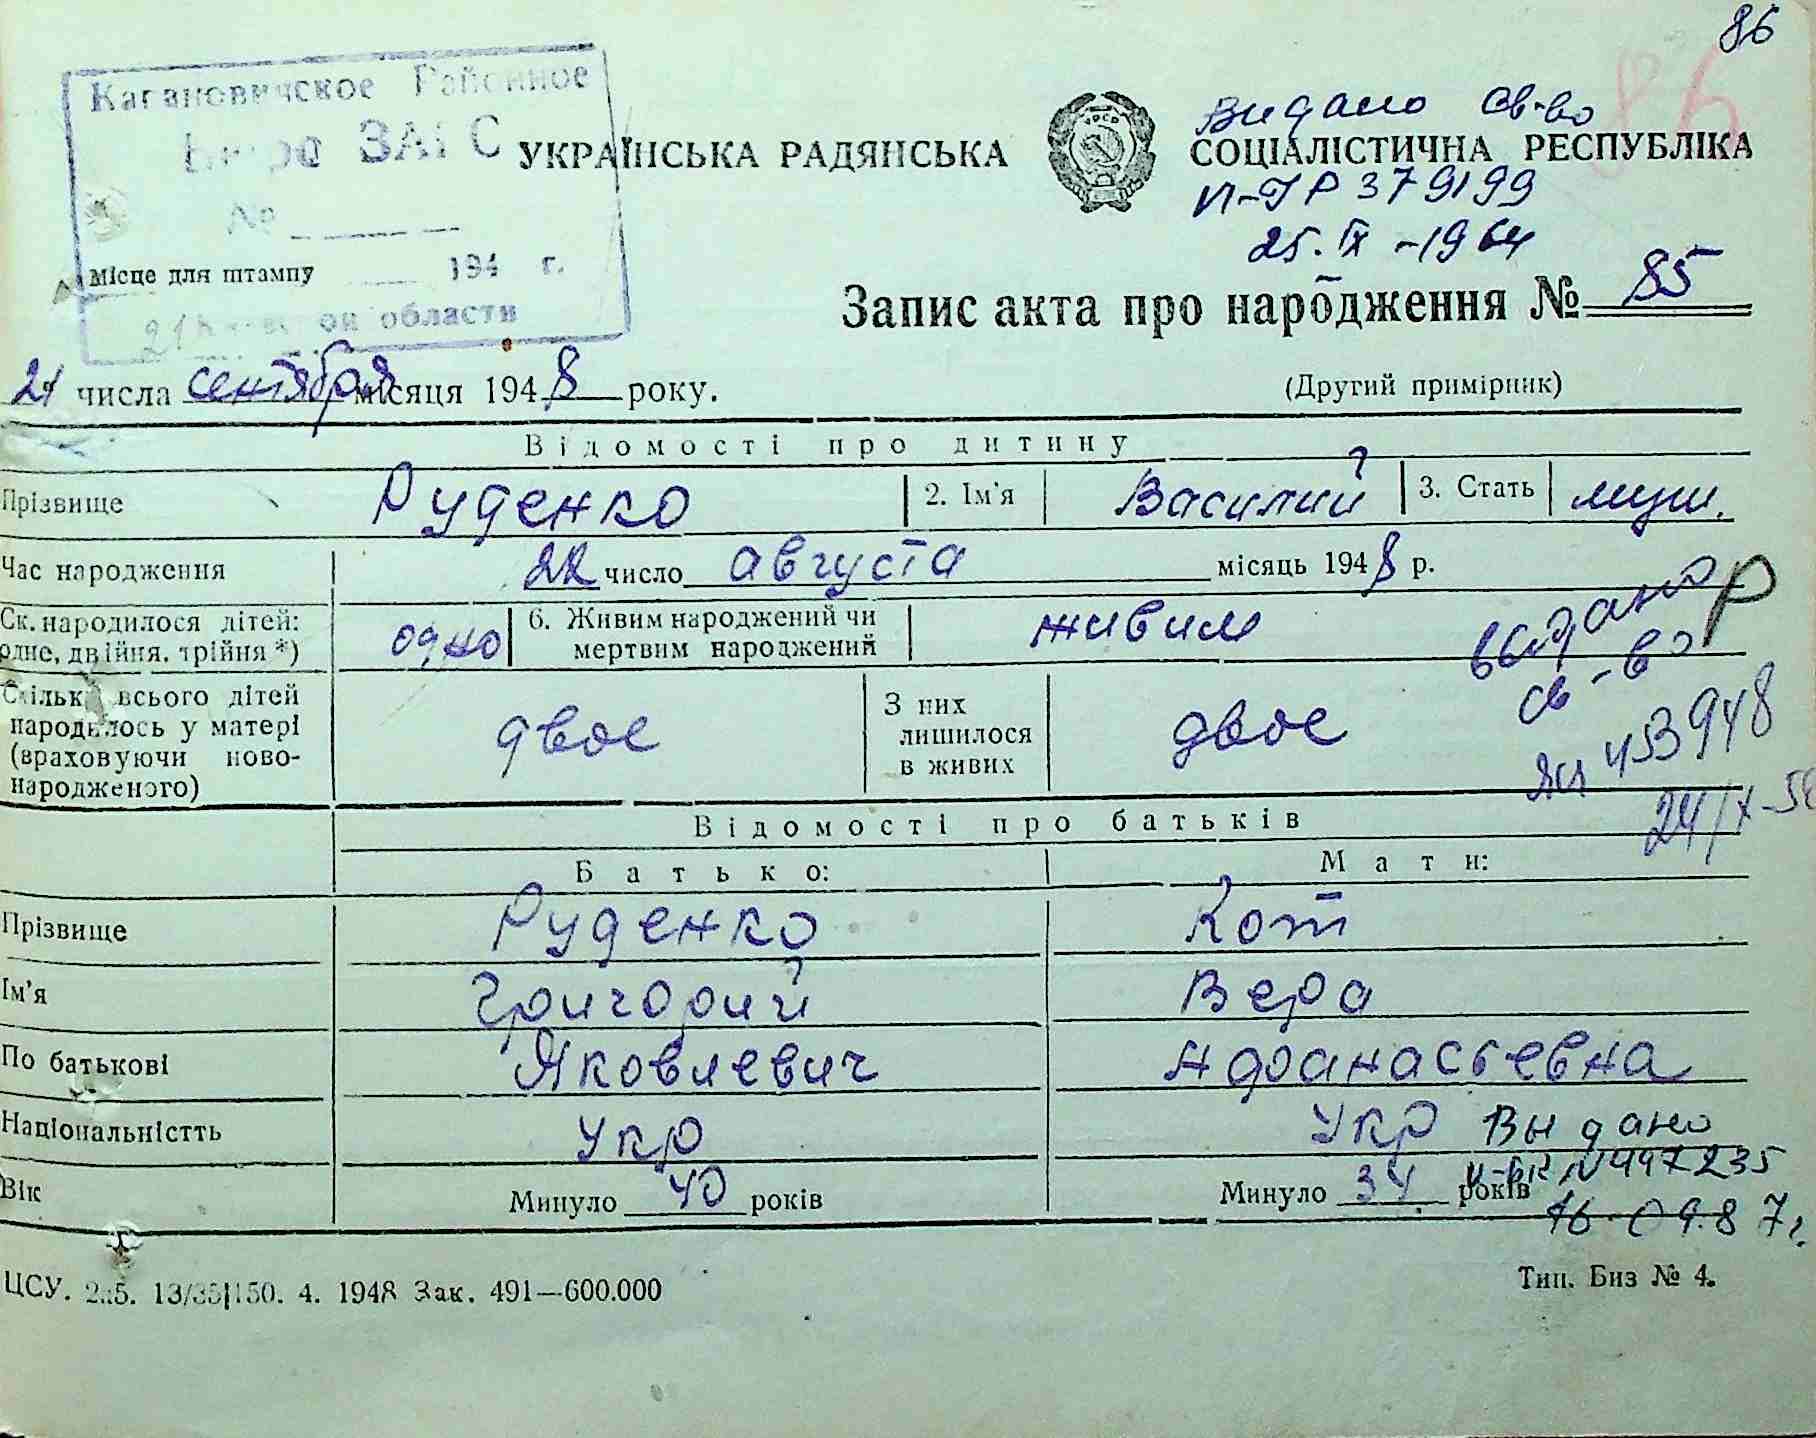 86
Кагановичское Районное
Бюро ЗАГС
№
Місце для штампу 194 г.
области
УКРАЇНСЬКА РАДЯНСЬКА СОЦІАЛІСТИЧНА РЕСПУБЛІКА
Видано св-во
379199
25.IX-1964
Запис акта про народження № 85
21 числа сентября місяця 1948 року.
(Другий примірник)
Відомості про дитину
Прізвище Руденко 2. Ім'я Василий 3. Стать муж.
Час народження 22 число августа місяць 1948 р.
Ск. народилося дітей: одне, двійня, трійня *) одно 6. Живим народжений чи мертвим народжений живим
выдано
св-во
453948
24/IX-
Скільки всього дітей народилось у матері (враховуючи новонародженого) двое З них лишилося в живих двое
Відомості про батьків
Батько: Мати:
Прізвище Руденко Кот
Ім'я Григорий Вера
По батькові Яковлевич Афанасьевна
Національністть Укр Укр
Выдано
№447235
16.09.87г.
Вік Минуло 40 років Минуло 34 років
ЦСУ. 13/35|150. 4. 1948 Зак. 491—600.000
Тип. Биз № 4.